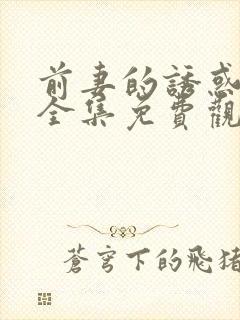 前妻的誘惑
全集免費觀
蒼穹下的飛豬